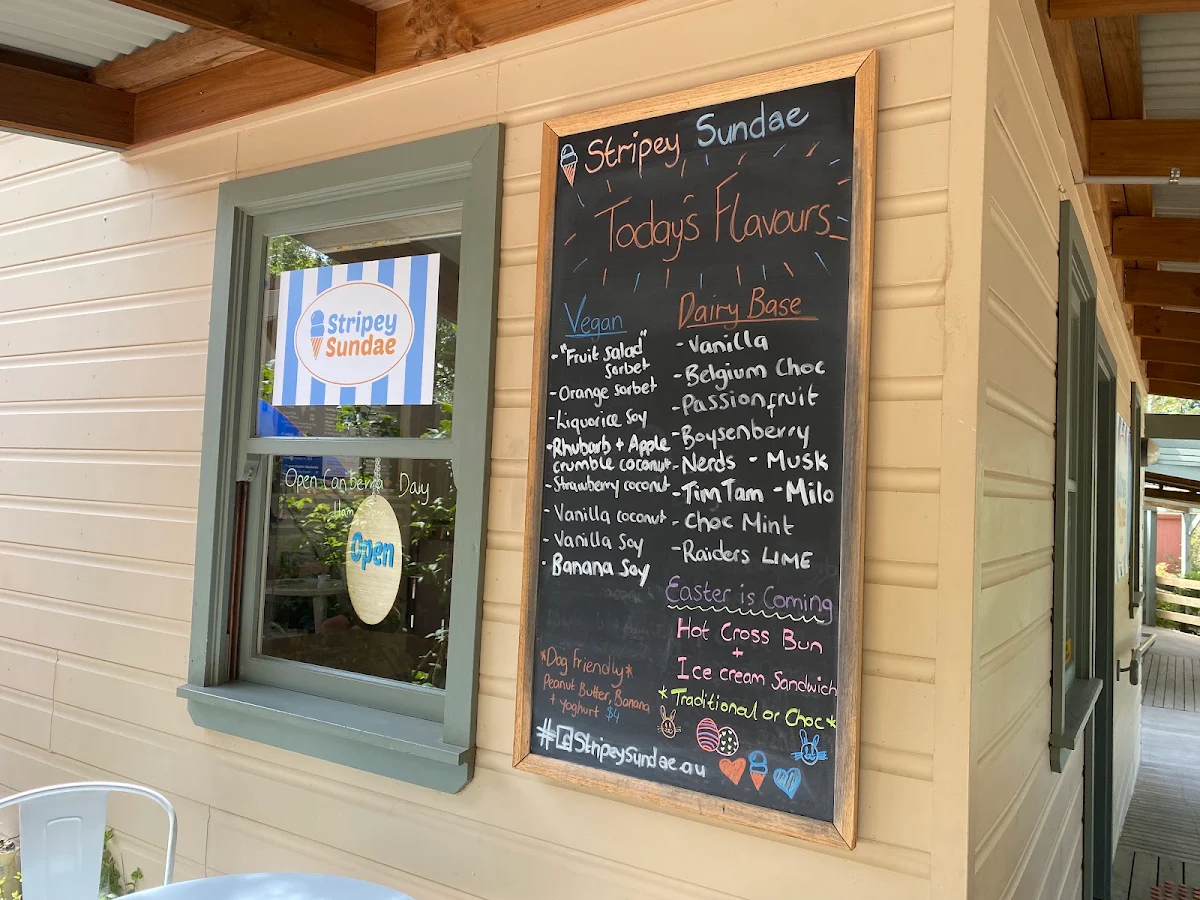 Stripey
Sundae
Open Canberra Day
Open
Stripey Sundae
Today's Flavours
Vegan
- "Fruit Salad"
Sorbet
- Orange Sorbet
- Liquorice Soy
- Rhubarb + Apple
crumble coconut
- Strawberry coconut
- Vanilla coconut
- Vanilla Soy
- Banana Soy
Dairy Base
- Vanilla
- Belgium Choc
- Passionfruit
- Boysenberry
- Nerds - Musk
- TimTam - Milo
- Choc Mint
- Raiders LIME
Easter is Coming
Hot Cross Bun
+
Ice cream Sandwich
*Traditional or Choc*
*Dog Friendly*
Peanut Butter, Banana
+ Yoghurt $4
#@StripeySundae.au